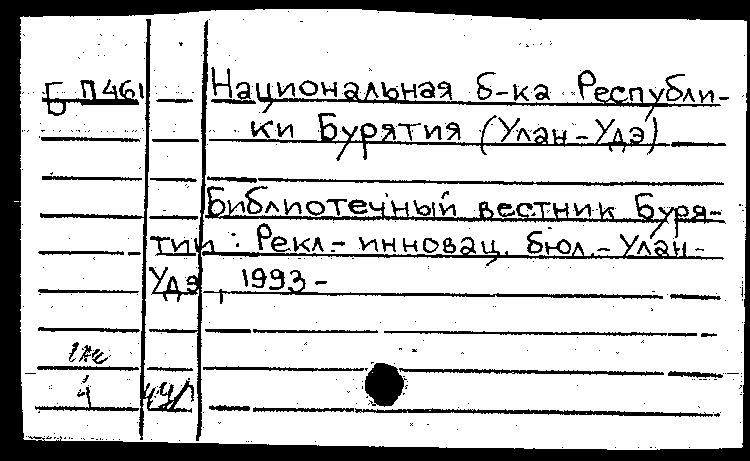 Б П461 Национальная б-ка Республи-
ки Бурятия (Улан-Удэ)
Библиотечный вестник Буря-
тии : Рекл.- инновац. бюл.- Улан-
Удэ, 1993-
4